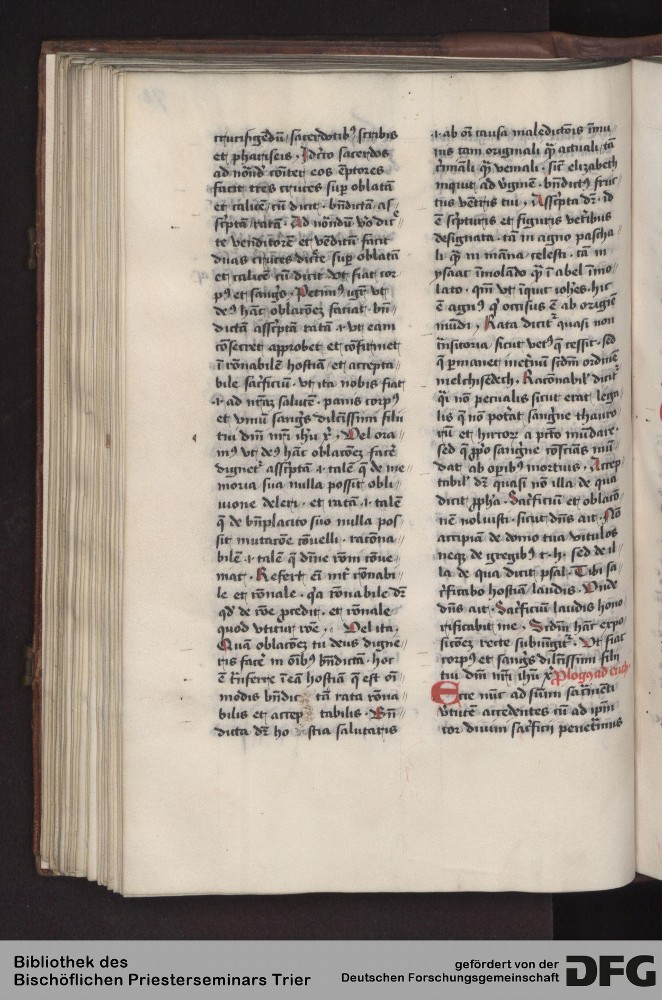 crucifigēdū sacerdotibꝰ scribis
et phariseis. Idcīro sacerdos
ad nōnd cōiter eos ēptores
facit tres cruces suꝑ oblatā
et calicē cū dicit. bn̄dictā as
sc̄ptā ratā. Ad nōndū vo dic
te venditorē et vēditū facit
duas cruces dicīe suꝑ oblatā
et calicē cū dicit vt fiat cor
pꝰ et sangꝰs. Petimꝰ igr̄ vt
deꝰ hāc oblacōez faciat bn̄
dictā assc̄ptā ratā ⁊ vt eam
cōsecret approbet et cōfirmet
ī rōnabilē hostiā et accepta
bile sac̄ficiū. vt ita nobis fiat
.i. ad nr̄az salutē. panis corpꝰ
et vinū sangꝰs dilc̄issimi filii
tui dn̄i nr̄i ih̄u xp̄. Vel ora
mꝰ vt deꝰ hāc oblacōez facē
dignetˀ assc̄ptā .i. talē ꝙ de me
moria sua nulla possit obli
uione deleri. et ratā .i. talē
ꝙ de bn̄placito suo nulla pos
sit mutacōe cōuelli. racōna
bilē .i. talē ꝙ diuīe rōni cōue
niat. Refert eī int̄ rōnabi
le et rōnale. qꝛ rōnabile dr̄
qd̓ de rōe ꝓcedit. et rōnale
quod vtitur rōe. Vel ita.
Quā oblacōez tu deus digne
ris facē in oībꝰ bn̄dictā. hoc
ē trāsferre ī eā hostiā ꝙ est oī
modis bn̄dicta tā rata rōna
bilis et acceptabilis. Bn̄
dicta dr̄ hostia salutaris
.i. ab oī causa maledictōis īmu
nis tam originali ꝙ̄ actuali. tā
c̓mīali ꝙ̄ veniali. sic̄ elizabeth
inquit ad v̓ginē. bn̄dictꝰ fruc
tus ventris tui. Assc̓pta dr̄. id
ē scripturis et figuris vet̓ibus
designata. tā in agno pascha
li ꝙ̄ in māna celesti. tā in
ysaac īmolādo ꝙ̄ ī abel īmo
lato. qm̄ vt īquit ioh̄es. hic
ē agnꝰ q̓ occisus ē ab origiē
mūdi. Rata dicitˀ quasi non
trāsitoria sicut vetꝰ ꝙ cessit. sed
ꝙ ꝑmanet inet̓nū sīdm̄ ordinē
melchisedech. Racōnabilˀ dicitˀ
qꝛ nō pecualis sicut erat lega
lis ꝙ nō pot̓at sangꝰne thauro
rū et hircorꝝ a pctō mūdare.
sed ꝙ ꝓpo sangꝰne cōsciās mū
dat ab oꝑibꝰ mortuis. Accep
tabilˀ dr̄ quasi nō illa de qua
dicit ꝓpha. Sac̓ficiū et oblacō
nē noluisti. sicut dn̄s ait. Nō
accipiā de domo tua vitulos
neqꝫ de gregibꝰ t. h. sed de il
la de qua dicit psal. Tibi sa
c̓ficabo hostiā laudis. Vnde
dn̄s ait. Sac̓ficiū laudis hono
rificabit me. Sīdm̄ hāc expo
sicōez recte subiūgitˀ. Vt fiat
corpꝰ et sangꝰs dilc̄issimi filii
tui dn̄i nr̄i ih̄u xp̄. Plogꝰ ad euch
Ecce nūc ad sūmi sac̓menti
v̓tutē accedentes cū ad ip̄m
cor diuini sac̓ficii penet̓mus
Bibliothek des
Bischöflichen Priesterseminars Trier
gefördert von der
Deutschen Forschungsgemeinschaft
DFG